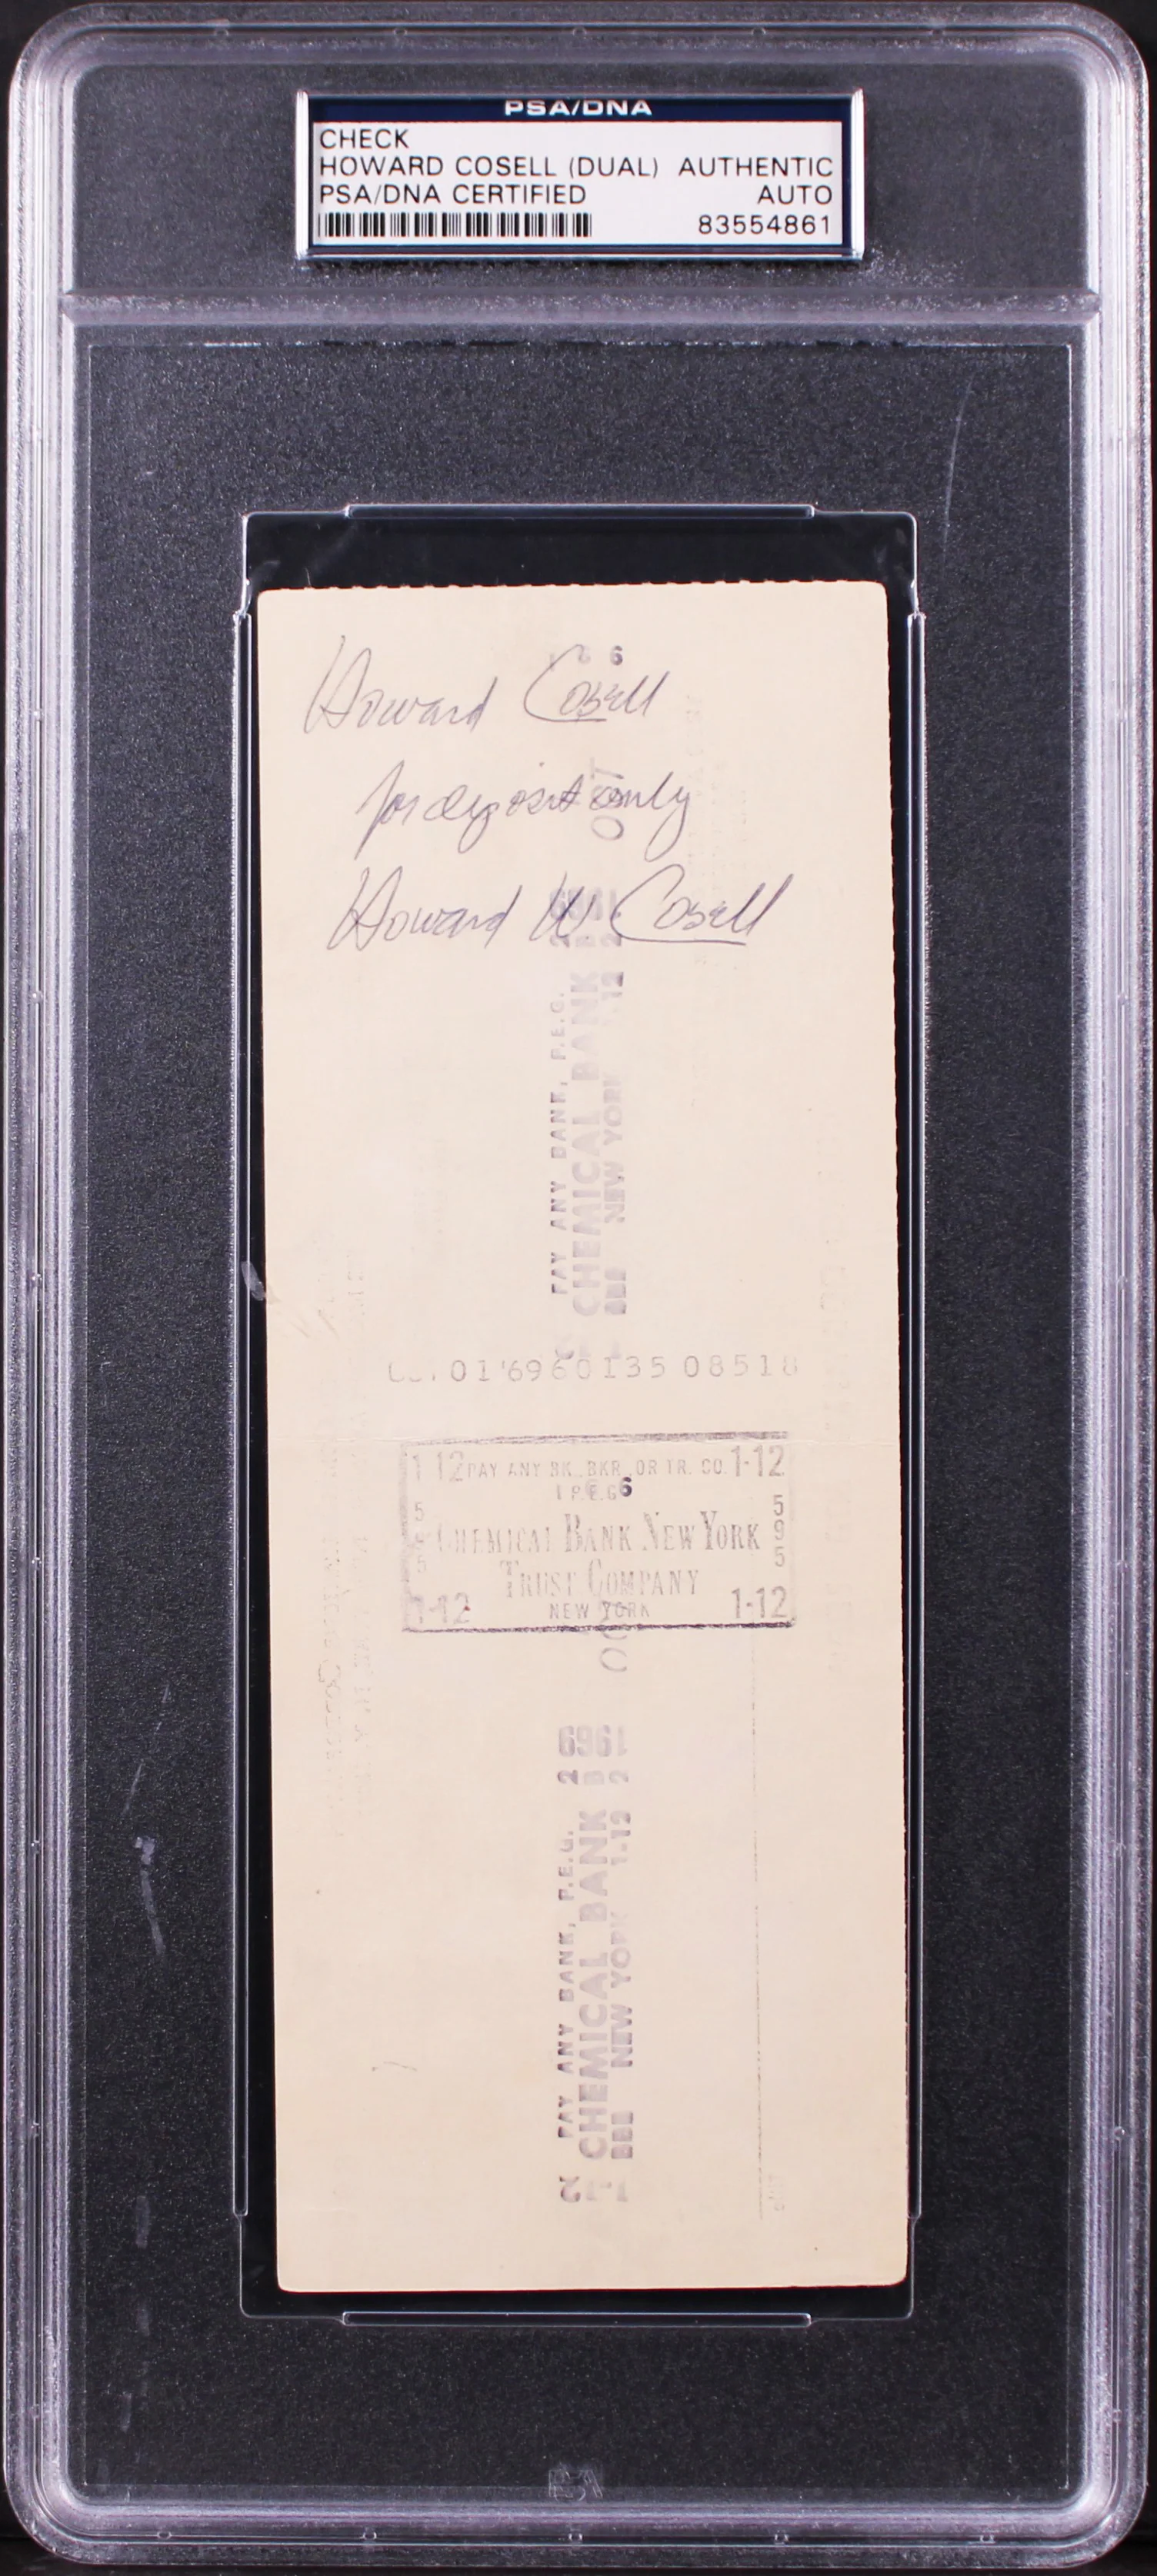 PSA/DNA
CHECK
HOWARD COSELL (DUAL) AUTHENTIC
PSA/DNA CERTIFIED AUTO
83554861
Howard Cosell
for deposit only
Howard W Cosell
PAY ANY BANK, P.E.G.
CHEMICAL BANK
NEW YORK 1-12
01'69 60135 08518
1-12 PAY ANY BK., BKR. OR TR. CO. 1-12
P.E.G.
CHEMICAL BANK NEW YORK
TRUST COMPANY
1-12 NEW YORK 1-12
595
1969
PAY ANY BANK, P.E.G.
CHEMICAL BANK
NEW YORK 1-12
PSA